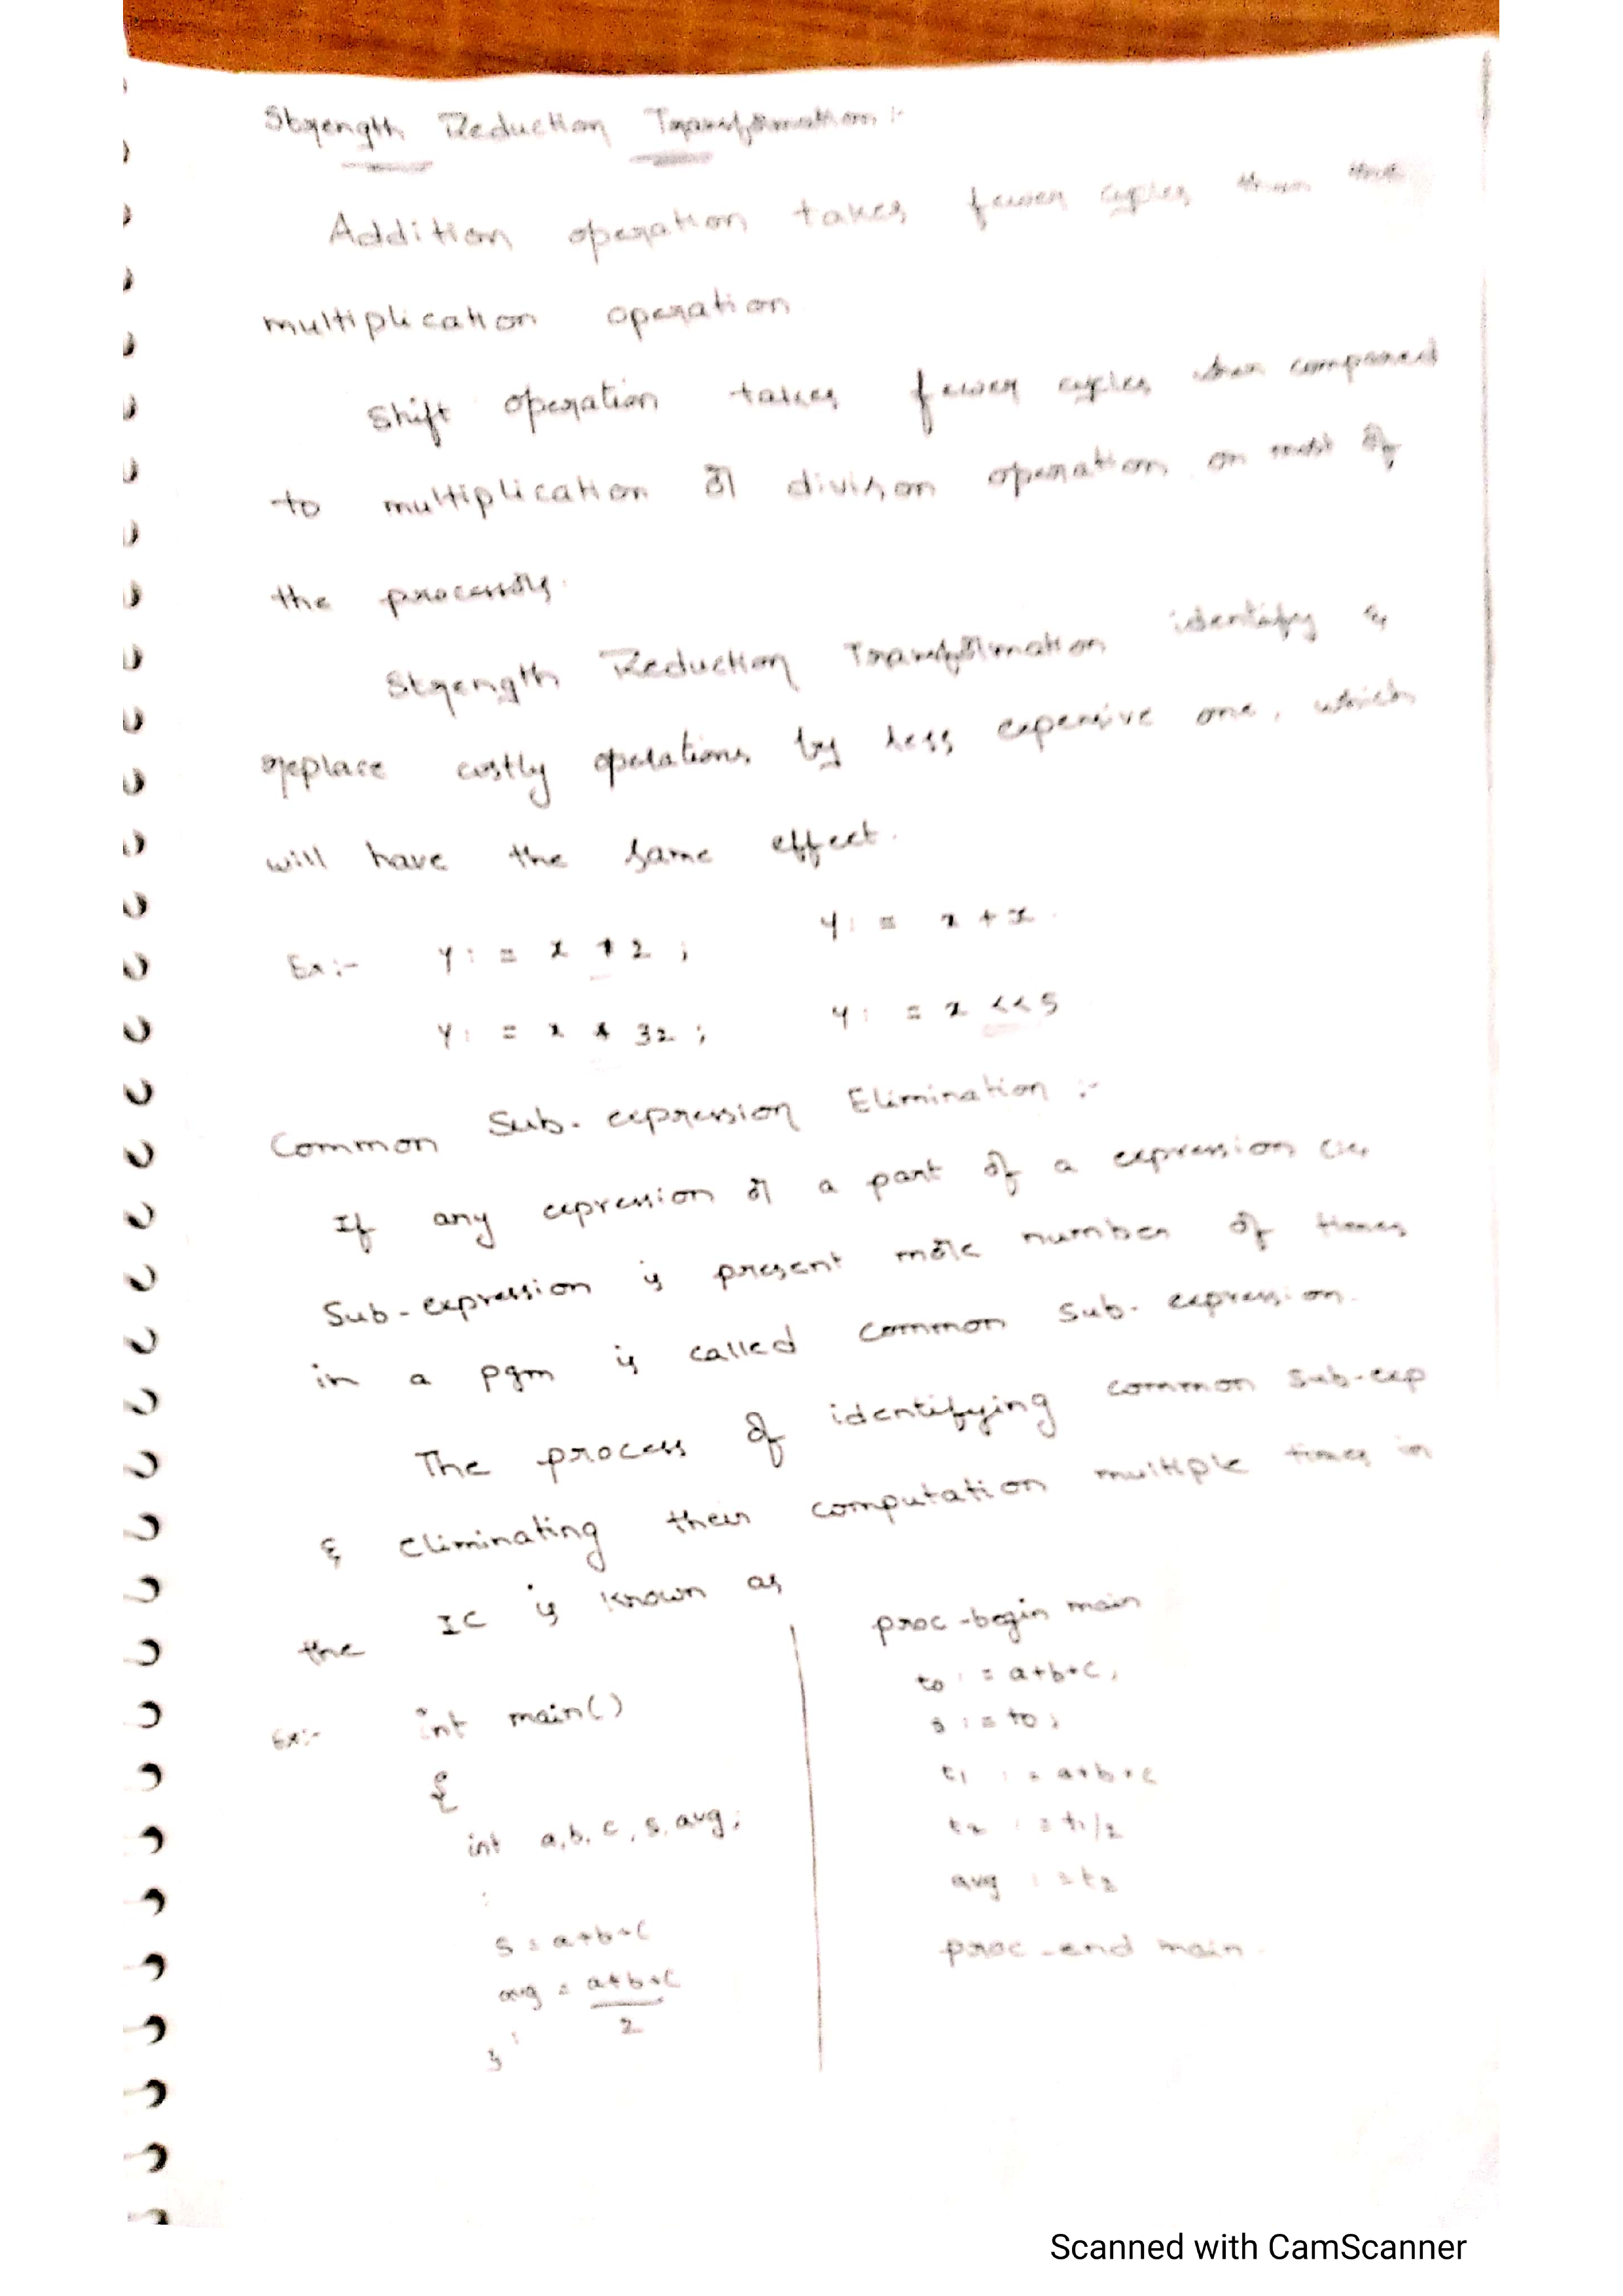 Strength Reduction Transformation :-
Addition operation takes fewer cycles than the
multiplication operation
Shift operation takes fewer cycles when compared
to multiplication or divison operation on most of
the processors.
Strength Reduction Transformation identify &
replace costly operations by less expensive one, which
will have the same effect.
Ex:- y : = x * 2 ; y : = x + x.
y : = x * 32 ; y : = x << 5
Common Sub-expression Elimination :-
If any expression or a part of a expression (ie,
Sub-expression is present more number of times
in a pgm is called common sub-expression.
The process of identifying common sub-exp
& eliminating their computation multiple times in
the IC is known as
Ex:- int main()
{
int a, b, c, s, avg;
:
s = a+b+c
avg = a+b+c
2
:
}
proc-begin main
t0 := a+b+c,
s := t0;
t1 := a+b+c
t2 := t1/2
avg := t2
proc-end main.
Scanned with CamScanner